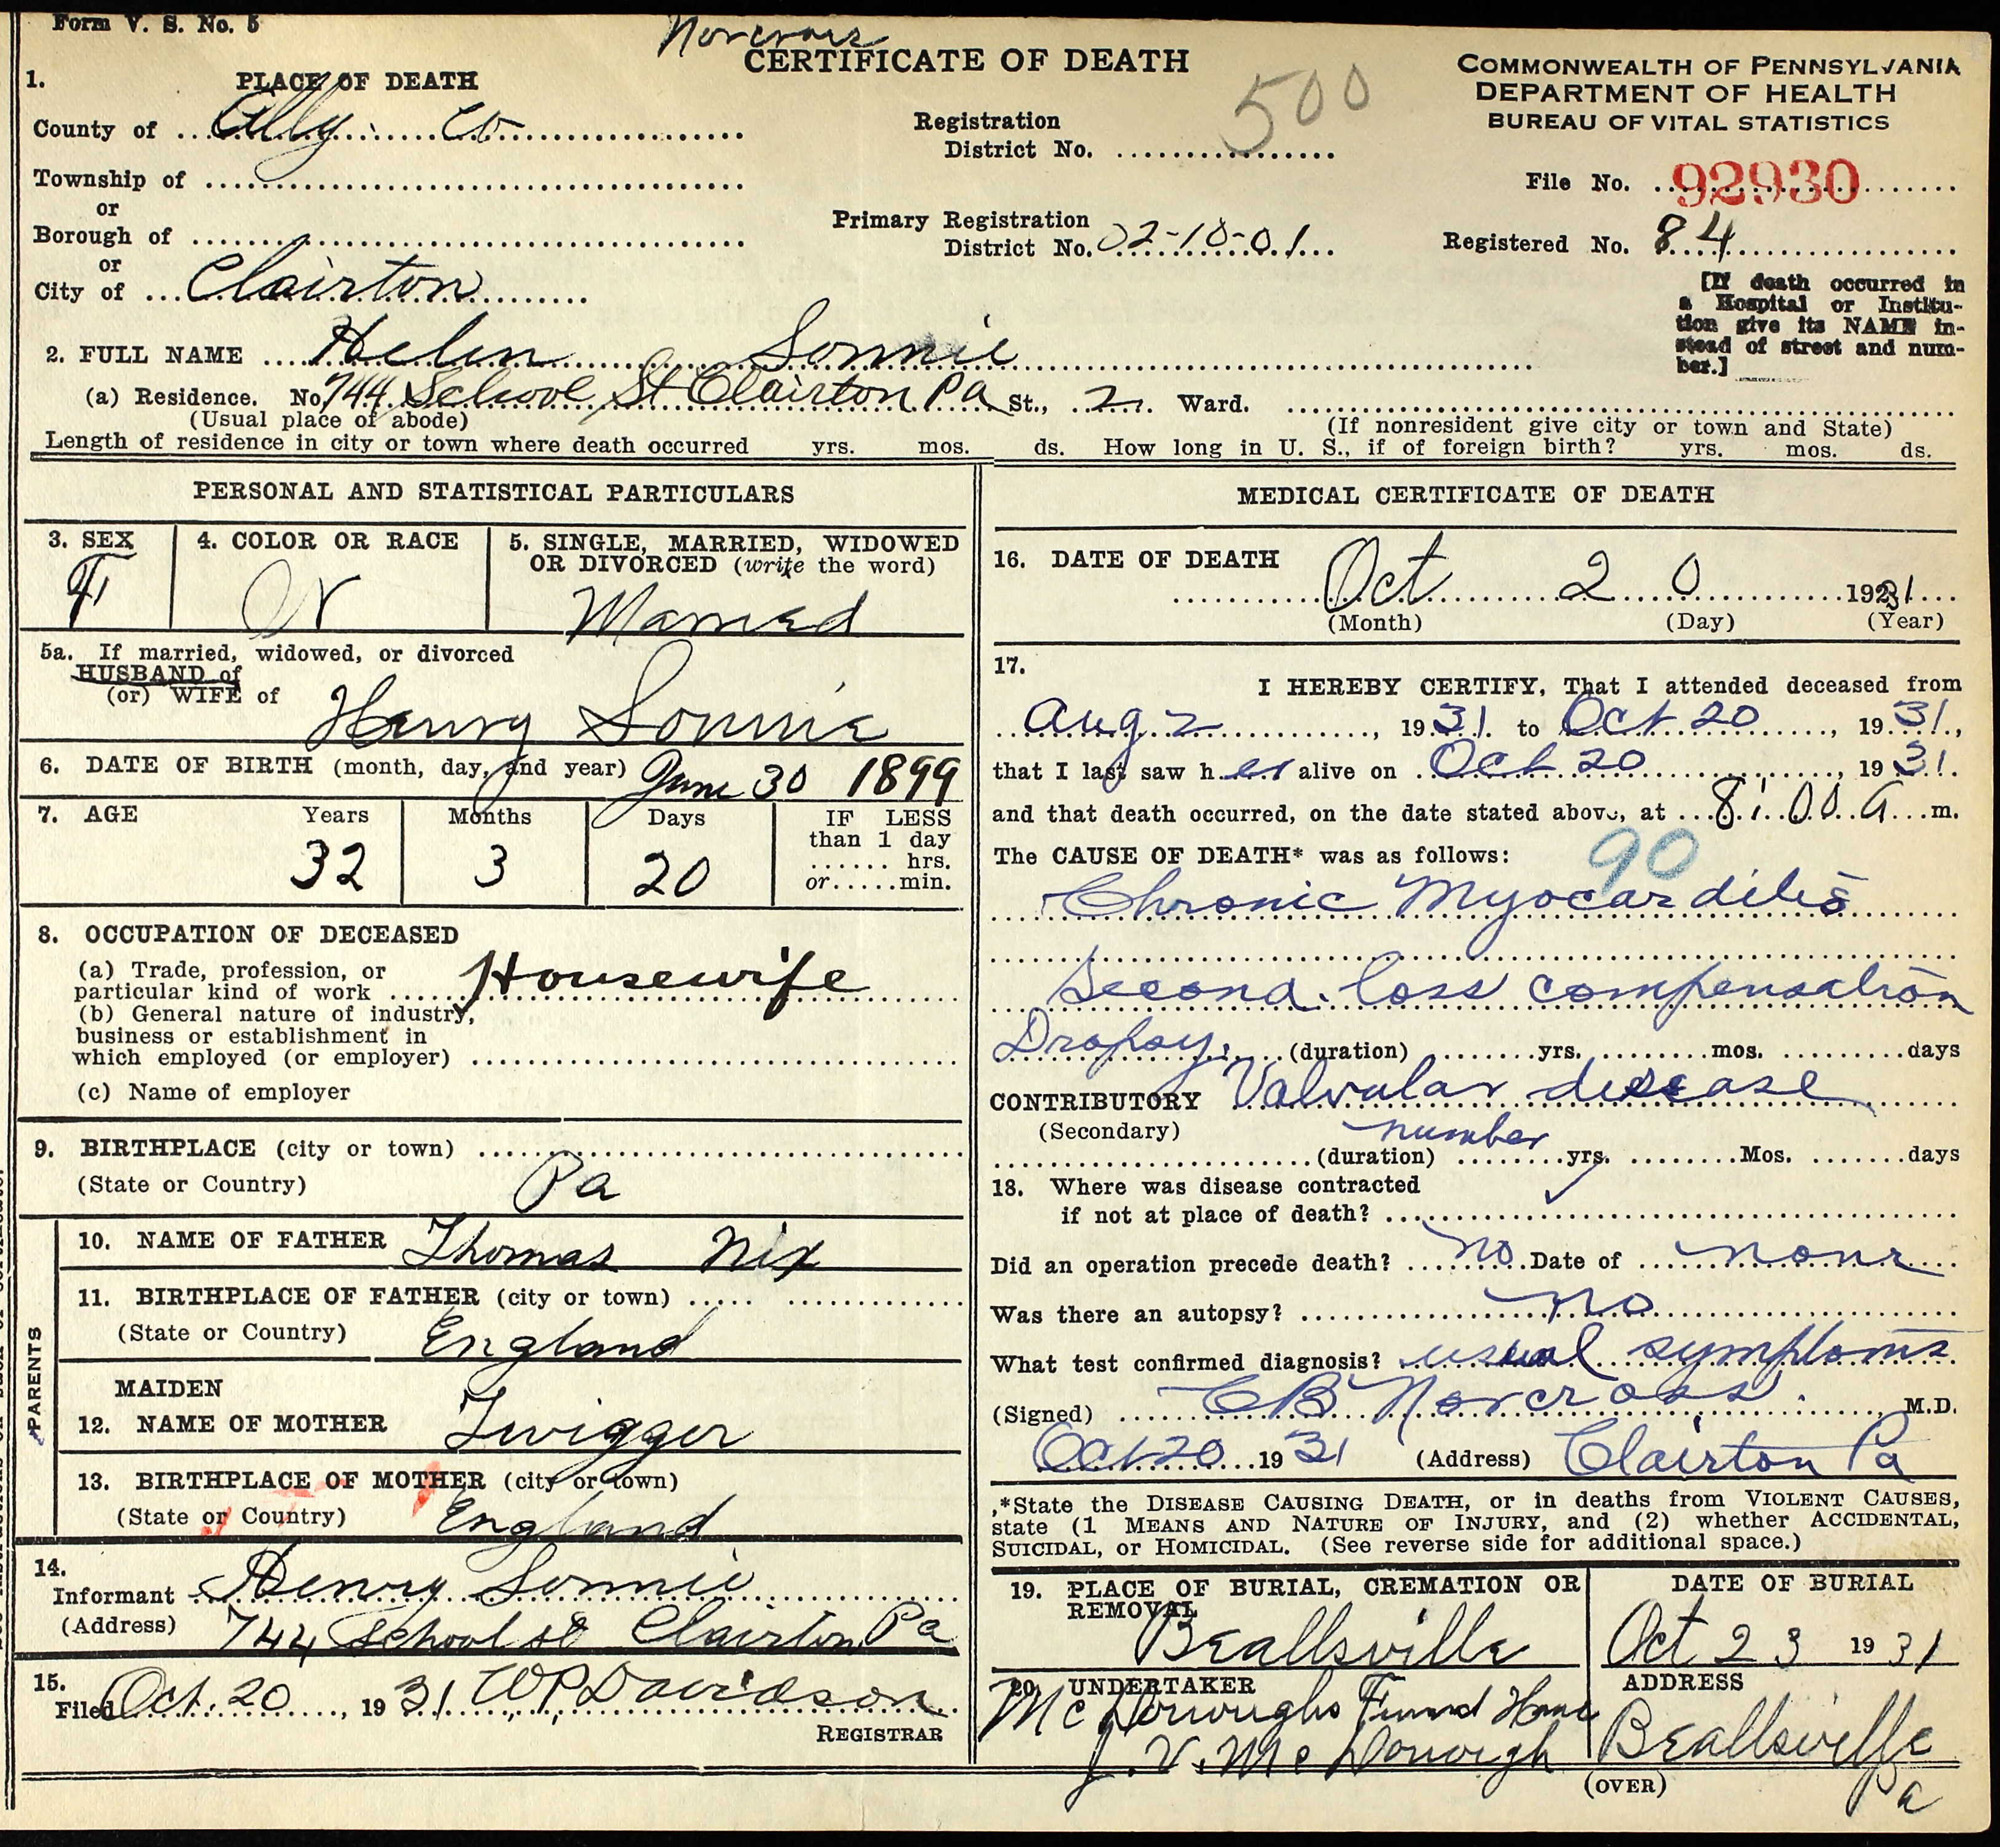 Form V. S. No. 5
Norcross
CERTIFICATE OF DEATH
COMMONWEALTH OF PENNSYLVANIA
DEPARTMENT OF HEALTH
BUREAU OF VITAL STATISTICS
1. PLACE OF DEATH
County of Ally. Co
Registration District No. 500
File No. 92930
Township of
or
Borough of
or
City of Clairton
Primary Registration District No. 02-10-01
Registered No. 84
[If death occurred in
a Hospital or Institu-
tion give its NAME in-
stead of street and num-
ber.]
2. FULL NAME Helen Sonnie
(a) Residence. No. 744 School St Clairton Pa St., 2 Ward.
(Usual place of abode)
(If nonresident give city or town and State)
Length of residence in city or town where death occurred yrs. mos. ds. How long in U. S., if of foreign birth? yrs. mos. ds.
PERSONAL AND STATISTICAL PARTICULARS
3. SEX
F
4. COLOR OR RACE
W
5. SINGLE, MARRIED, WIDOWED
OR DIVORCED (write the word)
Married
5a. If married, widowed, or divorced
HUSBAND of
(or) WIFE of Henry Sonnie
6. DATE OF BIRTH (month, day, and year) June 30 1899
7. AGE Years Months Days
32 3 20
IF LESS
than 1 day
...... hrs.
or.....min.
8. OCCUPATION OF DECEASED
(a) Trade, profession, or
particular kind of work Housewife
(b) General nature of industry,
business or establishment in
which employed (or employer)
(c) Name of employer
9. BIRTHPLACE (city or town)
(State or Country) Pa
PARENTS
10. NAME OF FATHER Thomas Nix
11. BIRTHPLACE OF FATHER (city or town)
(State or Country) England
MAIDEN
12. NAME OF MOTHER Twigger
13. BIRTHPLACE OF MOTHER (city or town)
(State or Country) England
14.
Informant Henry Sonnie
(Address) 744 School St Clairton Pa
15.
Filed Oct. 20, 1931 W.P. Davidson
REGISTRAR
MEDICAL CERTIFICATE OF DEATH
16. DATE OF DEATH
Oct 20 1931
(Month) (Day) (Year)
17.
I HEREBY CERTIFY, That I attended deceased from
Aug 2, 1931 to Oct 20, 1931,
that I last saw her alive on Oct 20, 1931.
and that death occurred, on the date stated above, at 8:00 A m.
The CAUSE OF DEATH* was as follows:
90
Chronic Myocarditis
Second. loss compensation
Dropsy. (duration) yrs. mos. days
CONTRIBUTORY Valvular disease
(Secondary)
number
(duration) yrs. Mos. days
18. Where was disease contracted
if not at place of death?
Did an operation precede death? no Date of none
Was there an autopsy? no
What test confirmed diagnosis? usual symptoms
(Signed) CB Norcross. M.D.
Oct 20 1931 (Address) Clairton Pa
*State the DISEASE CAUSING DEATH, or in deaths from VIOLENT CAUSES,
state (1 MEANS AND NATURE OF INJURY, and (2) whether ACCIDENTAL,
SUICIDAL, or HOMICIDAL. (See reverse side for additional space.)
19. PLACE OF BURIAL, CREMATION OR
REMOVAL
Beallsville
DATE OF BURIAL
Oct 23 1931
20. UNDERTAKER
McDonoughs Funeral Home
J. V. McDonough
ADDRESS
Beallsville
Pa
(OVER)